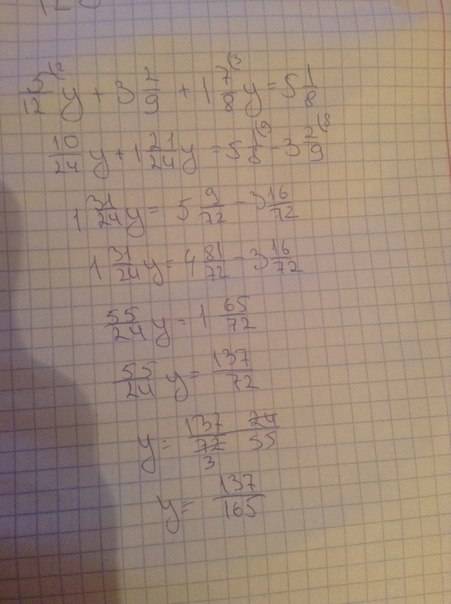 5/12 (2 y + 3 2/9 + 1 7/8 (3 y = 5 1/8
10/24 y + 1 21/24 y = 5 1/8 (9 - 3 2/9 (8
1 31/24 y = 5 9/72 - 3 16/72
1 31/24 y = 4 81/72 - 3 16/72
55/24 y = 1 65/72
55/24 y = 137/72
y = 137/72 24/55 3
y = 137/165